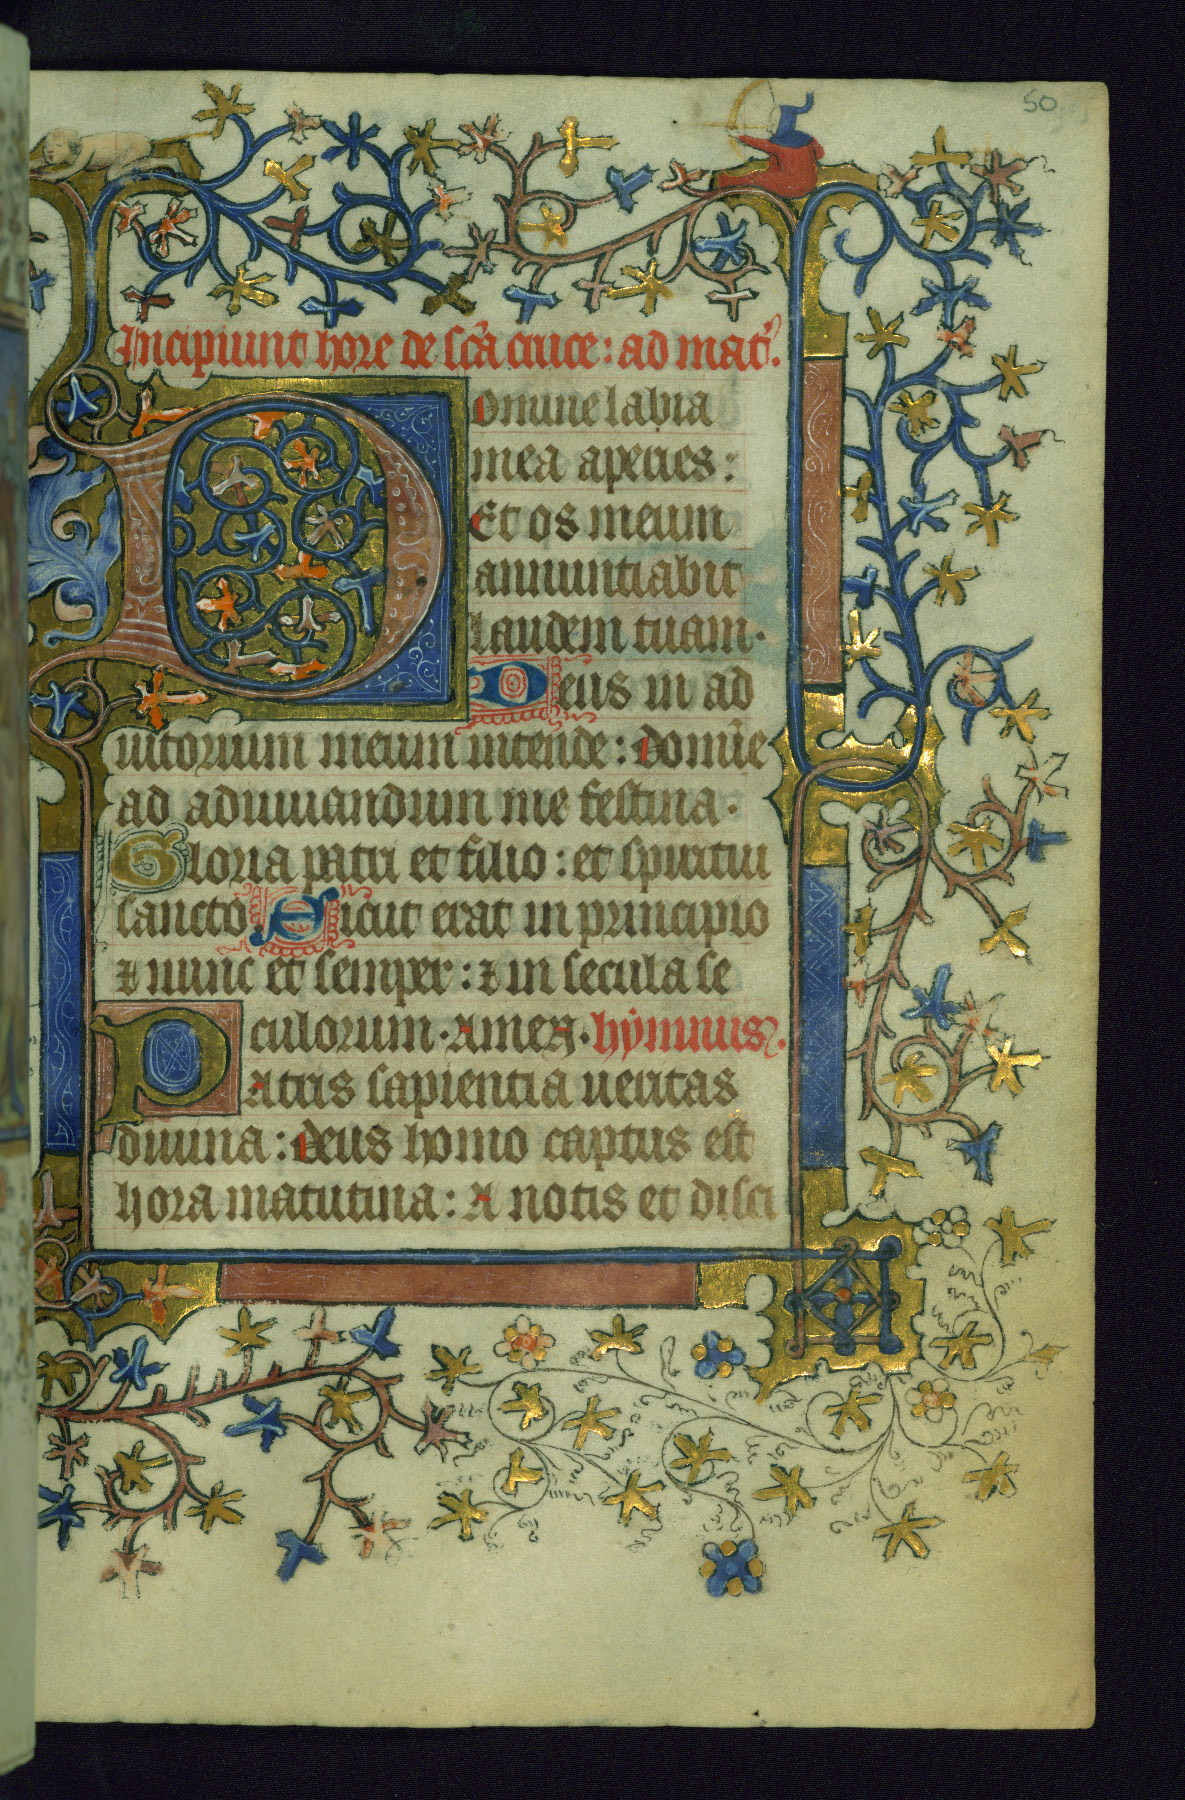 50
Incipiunt hore de sc̄a cruce: ad mat̄.
Domine labia
mea aperies:
Et os meum
annuntiabit
laudem tuam.
Deus in ad
iutorium meum intende: domīe
ad adiuuandum me festina.
Gloria patri et filio: et spiritui
sancto. Sicut erat in principio
⁊ nunc et semper: ⁊ in secula se
culorum. Amen. hymnus.
Patris sapientia ueritas
diuina: deus homo captus est
hora matutina: A notis et disci